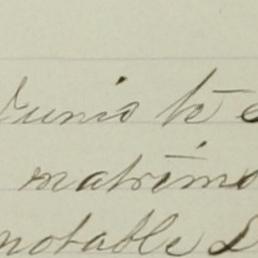 Junio te
matrimo
notable